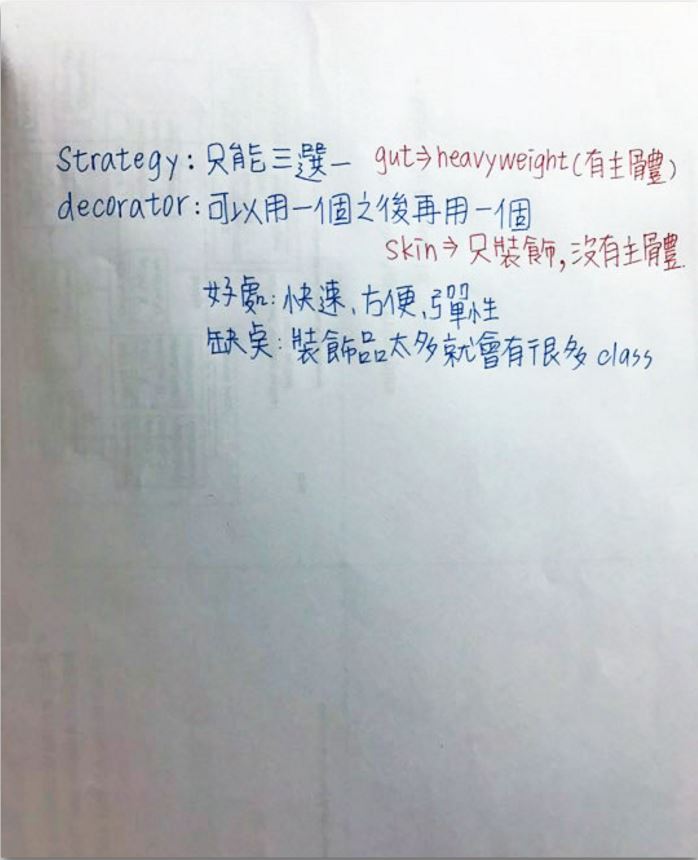 Strategy: 只能三選一 gut⇒heavyweight(有主體)
decorator: 可以用一個之後再用一個
skin⇒只裝飾,沒有主體
好處: 快速、方便、彈性
缺點: 裝飾品太多就會有很多 class